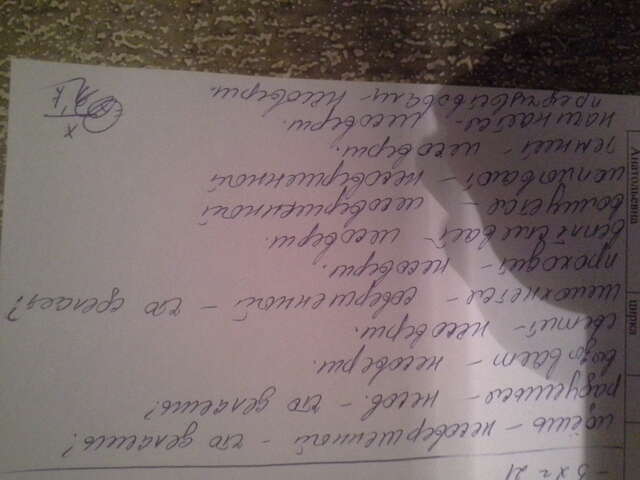 - 3x = 21
поёшь - несовершенный - что делаешь?
радуешься - несов. - что делаешь?
воздувает - несоверш.
светит - несоверш.
шелохнётся - совершенный - что сделает?
проходит - несоверш.
всплёскивает - несоверш.
волнуется - несовершенный
наплывают - несовершенный
темнеет - несоверш.
начинается - несоверш.
предчувствовали - несоверш.
Анатольевна
цирка